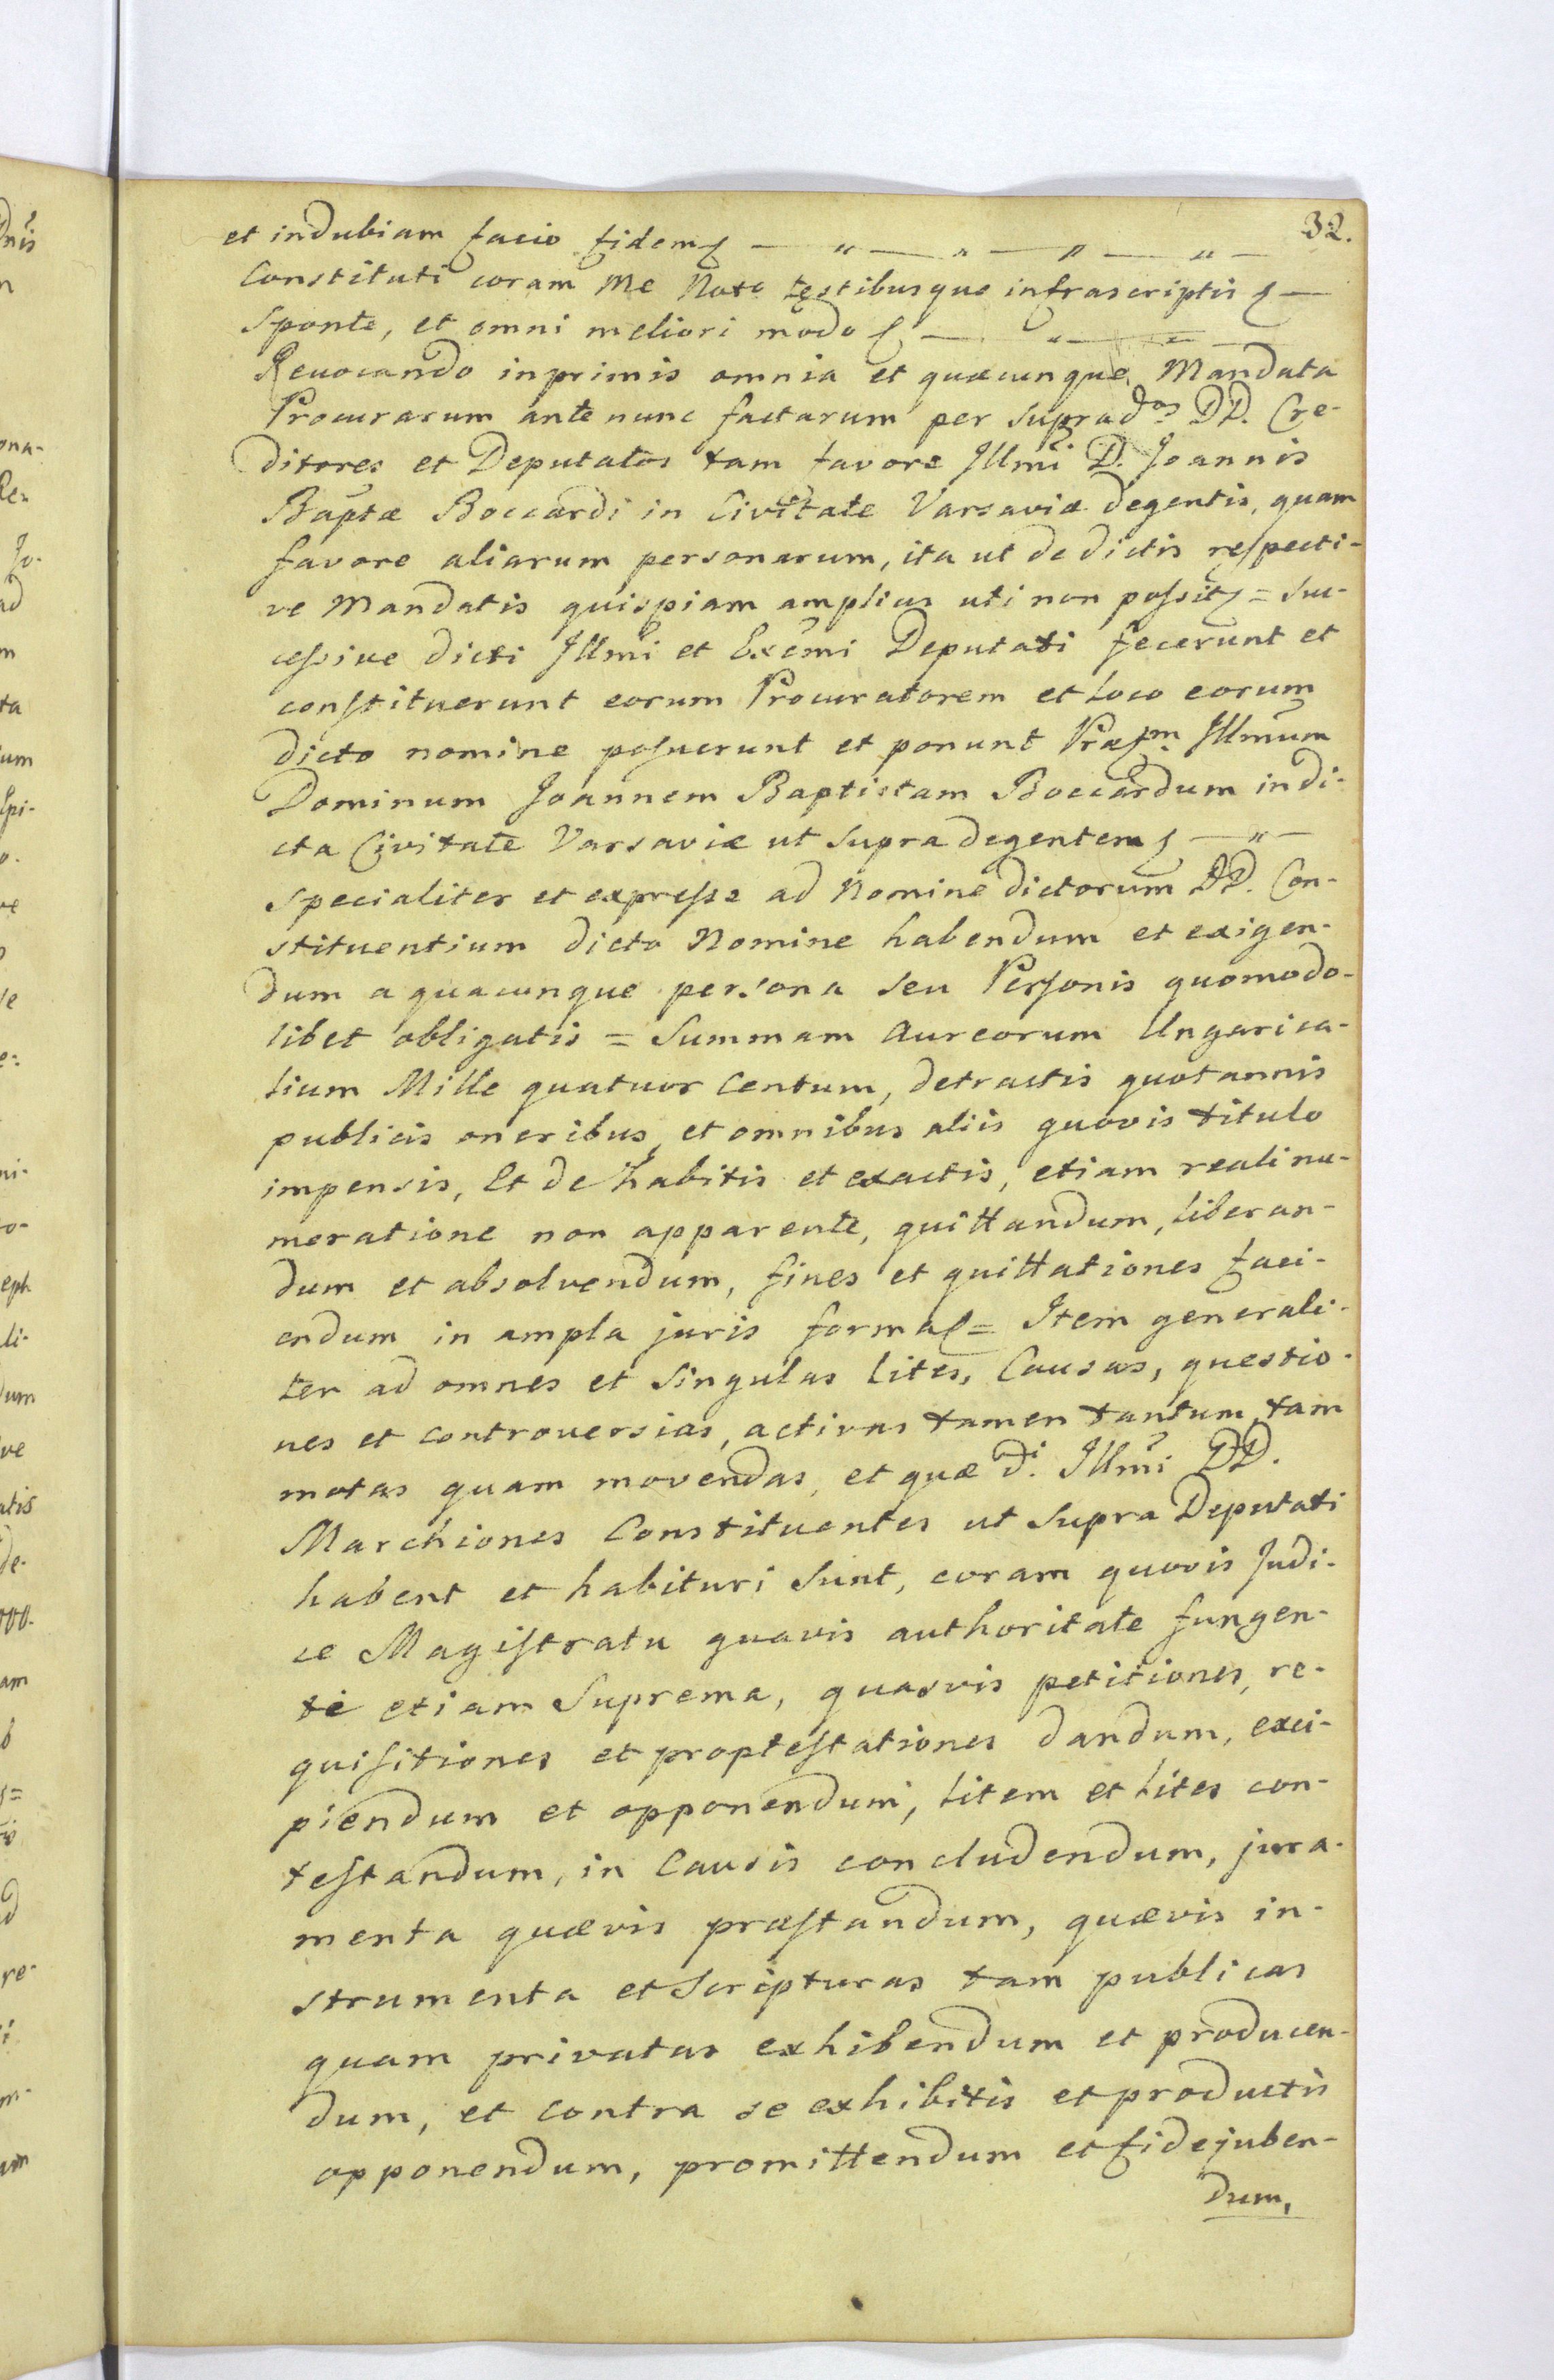 32.
et indubiam facio fidem — " — " — " — " —
Constituti coram Me Noto testibusque infrascriptis —
Sponte, et omni meliori modo — " — " —
Revocando inprimis omnia et quæcunque Mandata
Procurarum ante nunc factarum per suprados DD. Cre-
ditores et Deputatos tam favore Illmi D. Joannis
Baptæ Boccardi in Civitate Varsaviæ degentis, quam
favore aliarum personarum, ita ut de dictis respecti-
ve Mandatis quispiam amplius uti non possit = Suc-
cessive dicti Illmi et Exëmi Deputati fecerunt et
constituerunt eorum Procuratorem et Loco eorum
dicto nomine posuerunt et ponunt Præfm Illmum
Dominum Joannem Baptistam Boccardum in di-
cta Civitate Varsaviæ ut supra degentem — " —
specialiter et expresse ad Nomine dictorum DD. Con-
stituentium dicto Nomine habendum et exigen-
dum a quacunque persona seu Personis quomodo-
libet obligatis = Summam Aureorum Ungarica-
lium Mille quatuor Centum, detractis quotannis
publicis oneribus, et omnibus aliis quovis titulo
impensis, Et de habitis et exactis, etiam reali nu-
meratione non apparente, quittandum, liberan-
dum et absolvendum, fines et quittationes faci-
endum in ampla juris forma = Item generali-
ter ad omnes et Singulas Lites, Causas, questio-
nes et controversias, activas tamen tantum, tam
motas quam movendas, et quæ di. Illmi DD.
Marchiones Constituentes ut Supra Deputati
habent et habituri Sunt, coram quovis Judi-
ce Magistratu quavis authoritate fungen-
te etiam Suprema, quasvis petitiones, re-
quisitiones et proptestationes dandum, exci-
piendum et opponendum, Litem et Lites con-
testandum, in Causis concludendum, jura-
menta quævis præstandum, quævis in-
strumenta et Scripturas tam publicas
quam privatas exhibendum et producen-
dum, et contra se exhibitis et productis
opponendum, promittendum et fidejuben-
dum,